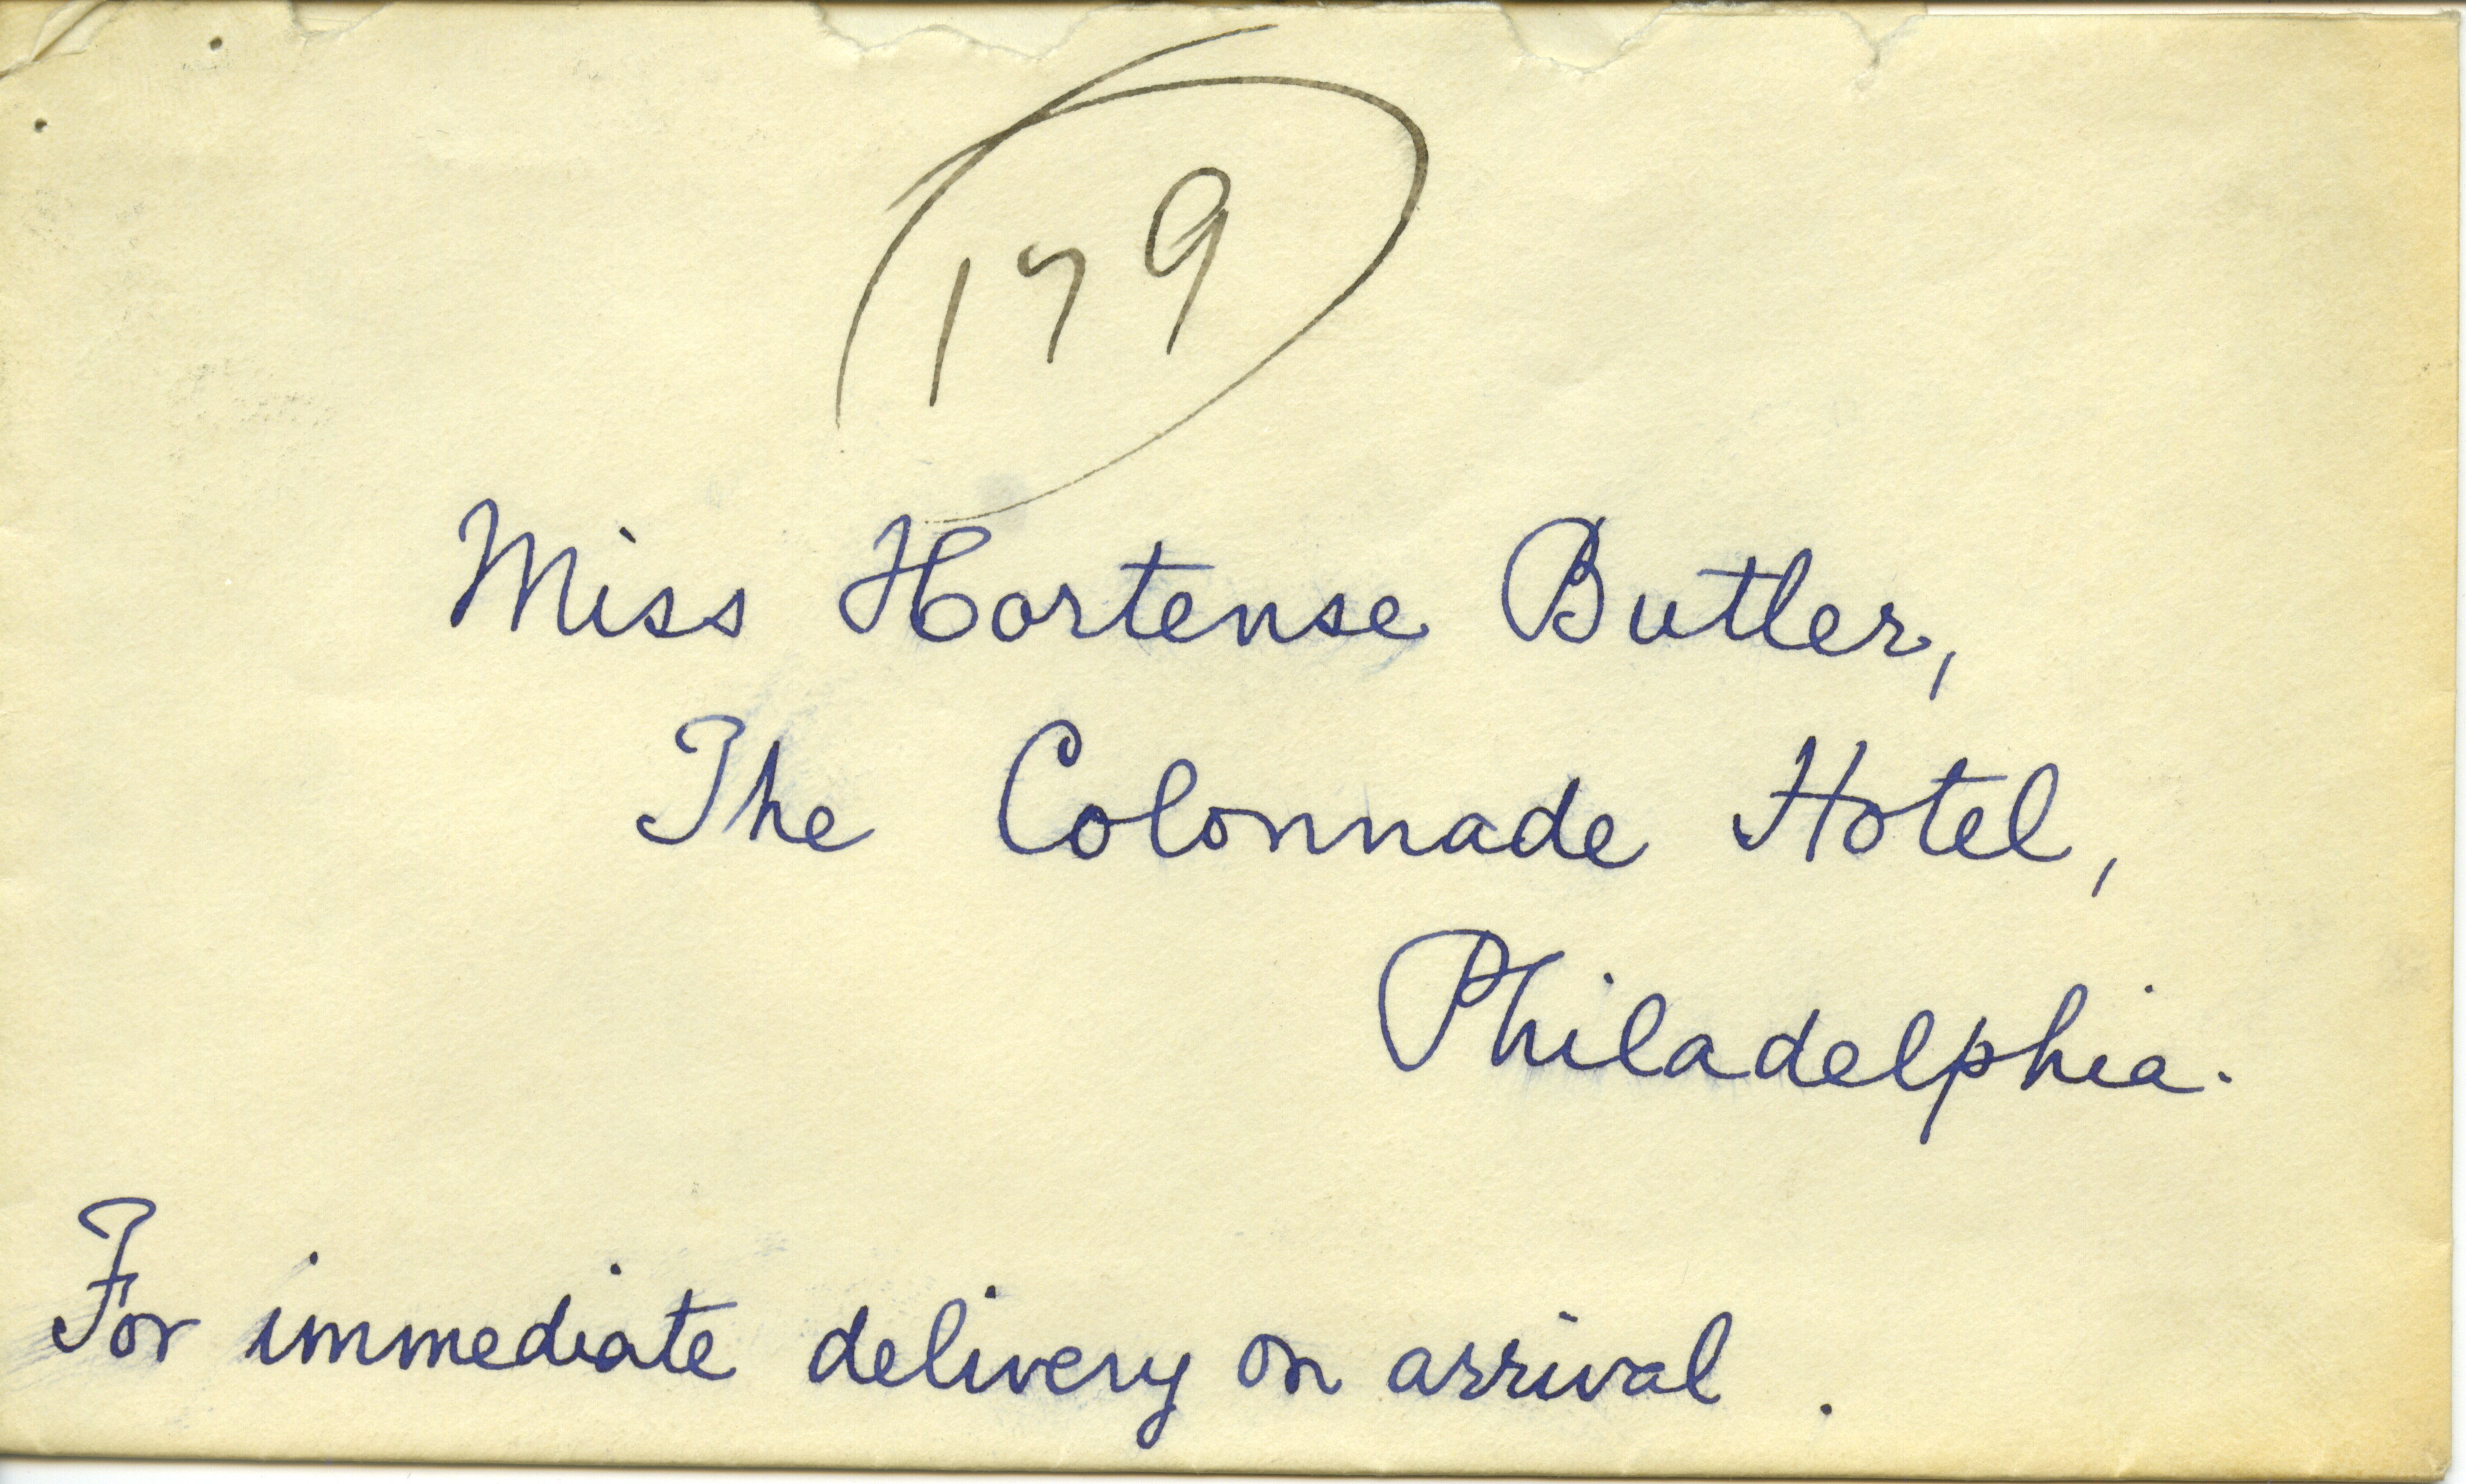 179
Miss Hortense Butler,
The Colonnade Hotel,
Philadelphia.
For immediate delivery on arrival.